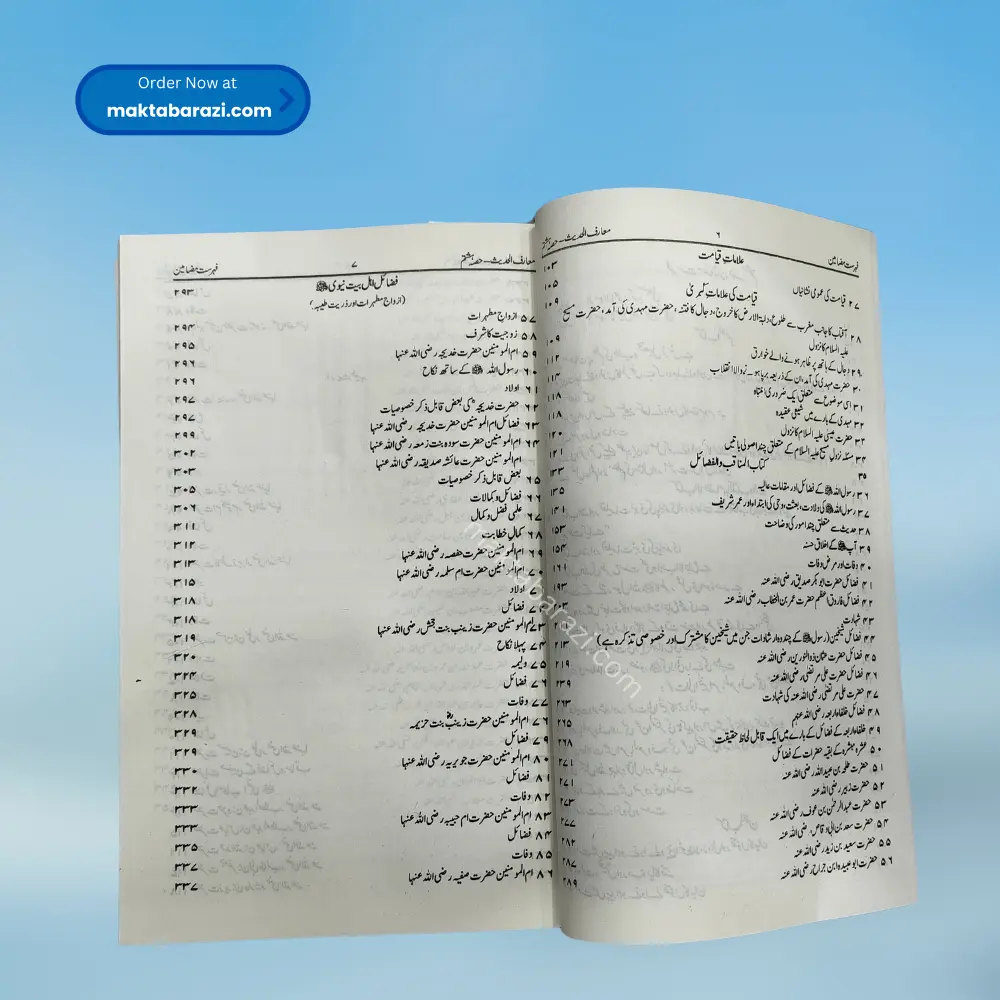 Order Now at
maktabarazi.com
فہرست مضامین
۶
معارف الحدیث – حصہ ہشتم
علامات قیامت
۱۰۳
۲۷ قیامت کی عمومی نشانیاں
۱۰۵
قیامت کی علامات کبریٰ
۱۰۹
۲۸ آفتاب کا جانب مغرب سے طلوع، دابۃ الارض کا خروج، دجال کا فتنہ، حضرت مہدی کی آمد، حضرت مسیح
علیہ السلام کا نزول
۱۰۹
۲۹ دجال کے ہاتھ پر ظاہر ہونے والے خوارق
۱۱۲
۳۰ حضرت مہدی کی آمد، ان کے ذریعہ برپا ہونے والا انقلاب
۱۱۴
۳۱ اسی موضوع سے متعلق ایک ضروری انتباہ
۱۱۸
۳۲ مہدی کے بارے میں شیعی عقیدہ
۱۱۸
۳۳ حضرت عیسیٰ علیہ السلام کا نزول
۱۲۰
۳۴ مسئلہ نزول مسیح علیہ السلام کے متعلق چند اصولی باتیں
۱۲۱
۳۵ کتاب المناقب والفضائل
۱۳۳
۳۶ رسول اللہ ﷺ کے فضائل اور مقامات عالیہ
۱۳۵
۳۷ رسول اللہ ﷺ کی ولادت، بعثت، وحی کی ابتداء اور عمر شریف
۱۴۱
۳۸ حدیث سے متعلق چند امور کی وضاحت
۱۵۳
۳۹ آپ ﷺ کے اخلاق حسنہ
۱۵۴
۴۰ وفات اور مرض وفات
۱۶۱
۴۱ فضائل حضرت ابو بکر صدیق رضی اللہ عنہ
۱۹۳
۴۲ فضائل فاروق اعظم حضرت عمر بن الخطاب رضی اللہ عنہ
۴۳ شہادت
۴۴ فضائل شیخین (رسول ﷺ کے چند وہ ارشادات جن میں شیخین کا مشترک اور خصوصی تذکرہ ہے)
۲۱۳
۴۵ فضائل حضرت عثمان ذوالنورین رضی اللہ عنہ
۲۱۹
۴۶ فضائل حضرت علی مرتضی رضی اللہ عنہ
۲۳۹
۴۷ حضرت علی مرتضی رضی اللہ عنہ کی شہادت
۲۶۳
۴۸ فضائل خلفاء اربعہ رضی اللہ عنہم
۲۶۵
۴۹ خلفاء اربعہ کے فضائل کے بارے میں ایک قابل لحاظ حقیقت
۲۶۸
۵۰ عشرہ مبشرہ کے بقیہ حضرات کے فضائل
۲۷۱
۵۱ حضرت طلحہ بن عبید اللہ رضی اللہ عنہ
۲۷۱
۵۲ حضرت زبیر رضی اللہ عنہ
۲۷۳
۵۳ حضرت عبد الرحمٰن بن عوف رضی اللہ عنہ
۲۷۷
۵۴ حضرت سعد بن ابی وقاص رضی اللہ عنہ
۲۸۲
۵۵ حضرت سعید بن زید رضی اللہ عنہ
۲۸۷
۵۶ حضرت ابو عبیدہ ابن جراح رضی اللہ عنہ
۲۸۹
معارف الحدیث – حصہ ہشتم
۷
فہرست مضامین
فضائل اہل بیت نبوی ﷺ
۲۹۳
(ازواج مطہرات اور ذریت طیبہ)
۵۷ ازواج مطہرات
۲۹۴
۵۸ زوجیت کا شرف
۲۹۵
۵۹ ام المومنین حضرت خدیجہ رضی اللہ عنہا
۲۹۶
۶۰ رسول اللہ ﷺ کے ساتھ نکاح
۲۹۶
۶۱ اولاد
۲۹۷
۶۲ حضرت خدیجہ کی بعض قابل ذکر خصوصیات
۲۹۷
۶۳ فضائل ام المومنین حضرت خدیجہ رضی اللہ عنہا
۲۹۹
۶۴ ام المومنین حضرت سودہ بنت زمعہ رضی اللہ عنہا
۳۰۲
ام المومنین حضرت عائشہ صدیقہ رضی اللہ عنہا
۳۰۳
۶۵ بعض قابل ذکر خصوصیات
۳۰۵
۶۶ فضائل و کمالات
۳۰۶
۶۷ علمی فضل و کمال
۳۱۱
۶۸ کمال خطابت
۳۱۲
۶۹ ام المومنین حضرت حفصہ رضی اللہ عنہا
۳۱۳
۷۰ ام المومنین حضرت ام سلمہ رضی اللہ عنہا
۳۱۵
اولاد
۳۱۸
فضائل
۳۱۸
ام المومنین حضرت زینب بنت جحش رضی اللہ عنہا
۳۱۹
۷۴ پہلا نکاح
۳۲۰
۷۵ ولیمہ
۳۲۴
۷۶ فضائل
۳۲۵
۷۷ وفات
۳۲۸
ام المومنین حضرت زینب بنت خزیمہ
۳۲۹
۷۹ فضائل
۳۲۹
۸۰ ام المومنین حضرت جویریہ رضی اللہ عنہا
۳۳۰
۸۱ فضائل
۳۳۲
۸۲ وفات
۳۳۳
۸۳ ام المومنین حضرت ام حبیبہ رضی اللہ عنہا
۳۳۳
۸۴ فضائل
۳۳۵
۸۵ وفات
۳۳۷
۸۶ ام المومنین حضرت صفیہ رضی اللہ عنہا
۳۳۷